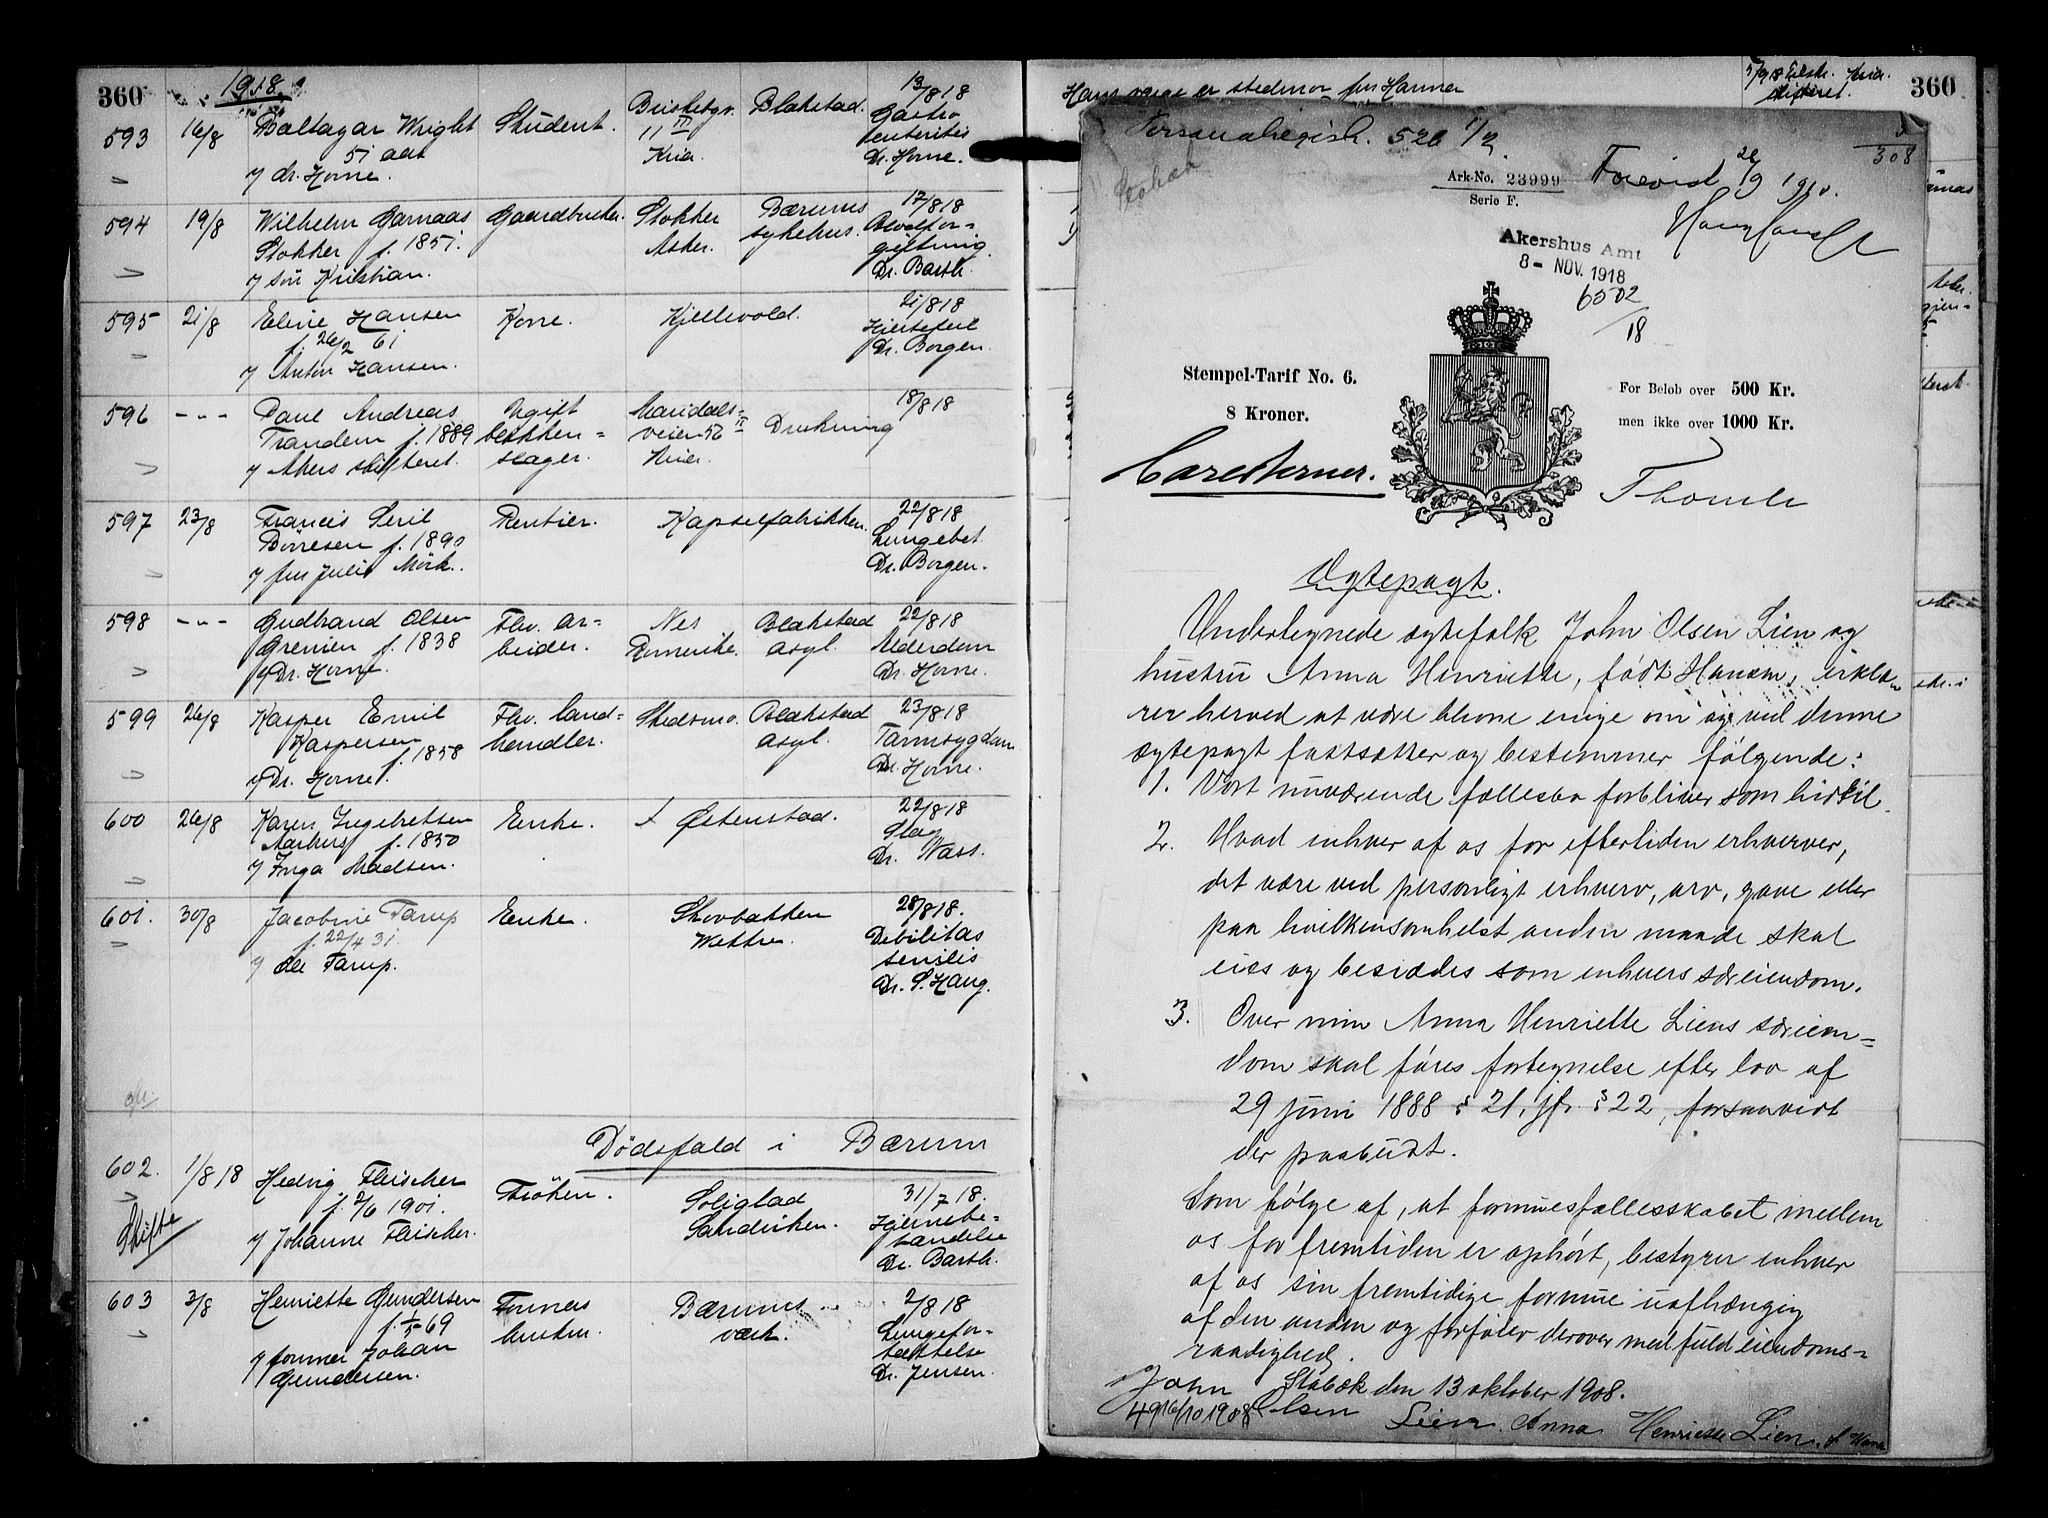 360
1918
593
16/8
Baltazar Wright
51 aar
v/ dr. Horne.
Student.
Briskebyv.
11 III
Kria.
Blakstad.
13/8 18
Gastro
enteritis
Dr. Horne.
594
19/8
Wilhelm Garnaas
Stokker f. 1851.
v/ søn Kristian.
Gaardbruker.
Stokker
Asker.
Bærums
sykehus.
17/8 18
Blodfor=
giftning.
Dr. Barth.
595
21/8
Eline Hansen
f. 26/2 61
v/ Anton Hansen.
Kone.
Kjellevold.
21/8 18
Hjertefeil
Dr. Borgen.
596
- " -
Paul Andreas
Trandem f. 1889
v/ Akers skifteret.
Ugift
blikken=
slager.
Maridals=
veien 56 II
Kria.
Drukning
18/8 18
597
23/8
Francis Seril
Börresen f. 1890
v/ fru Julie Mörk.
Rentier.
Kapselfabrikken.
22/8 18
Lungebet.
Dr. Borgen.
598
- " -
Gudbrand Olsen
Grenien f. 1838
v/ Dr. Horne.
Fhv. ar=
beider.
Nes
Romerike.
Blakstad
asyl.
22/8 18
Alderdom
Dr. Horne.
599
26/8
Kasper Emil
Kaspersen
f. 1858
v/ Dr. Horne.
Fhv. land=
handler.
Skedsmo.
Blakstad
asyl.
23/8 18
Tarmsygdom
Dr. Horne.
600
26/8
Karen Ingebretsen
Aarhus f. 1850
v/ Inga Madsen.
Enke.
Østenstad.
22/8 18
Slag
Dr. Wass.
601.
30/8
Jacobine Tarup
f. 22/4 31.
v/ Ole Tarup.
Enke.
Skovbakken
Wettre.
28/8 18.
Debilitas
senilis
Dr. S. Haug.
Dödsfald i Bærum
602.
1/8 18
Hedvig Fleischer
f. 2/6 1901.
v/ Johanne Fleischer.
Skifte
Fröken.
Soliglad
Sandviken.
31/7 18.
Hjernebe=
tændelse
Dr. Barth.
603
3/8
Henriette Gundersen
f. 1/5 69
v/ former Johan
Gundersen.
Formers
hustru.
Bærums
værk.
2/8 18
Lungefor=
tættelse
Dr. Jensen.
Hans værge er stedmor fru Hanna
5/9 18 Kria.
skifteret.
360
Personalregist. 526 1/2.
308
Ark-No. 23999
Serie F.
Akershus Amt
8 - NOV. 1918
6502
/18
Stempel-Tarif No. 6.
8 Kroner.
For Beløb over 500 Kr.
men ikke over 1000 Kr.
Thomle
Ægtepagt.
Undertegnede ægtefolk John Olsen Lien og
hustru Anna Henriette, født Hansen, erklæ-
rer herved at være blevne enige om og ved denne
ægtepagt fastsætter og bestemmer følgende:
1. Vort nuværende fællesbo forbliver som hidtil.
2. Hvad enhver af os for eftertiden erhverver,
det være ved personligt erhverv, arv, gave eller
paa hvilkensomhelst anden maade skal
eies og besiddes som enhvers særeiendom.
3. Over min Anna Henriette Liens særeien=
dom skal føres fortegnelse efter lov af
29 juni 1888 § 21, jfr. § 22, forsaavidt
der paabudt.
Som følge af, at formuesfællesskabet mellem
os for fremtiden er ophørt, bestyrer enhver
af os sin fremtidige formue uafhængig
af den anden og forføier derover med fuld eiendoms=
raadighed.
Stabæk den 13 oktober 1908.
John Olsen Lien. Anna Henriette Lien, f. Hans
49 16/10 1908